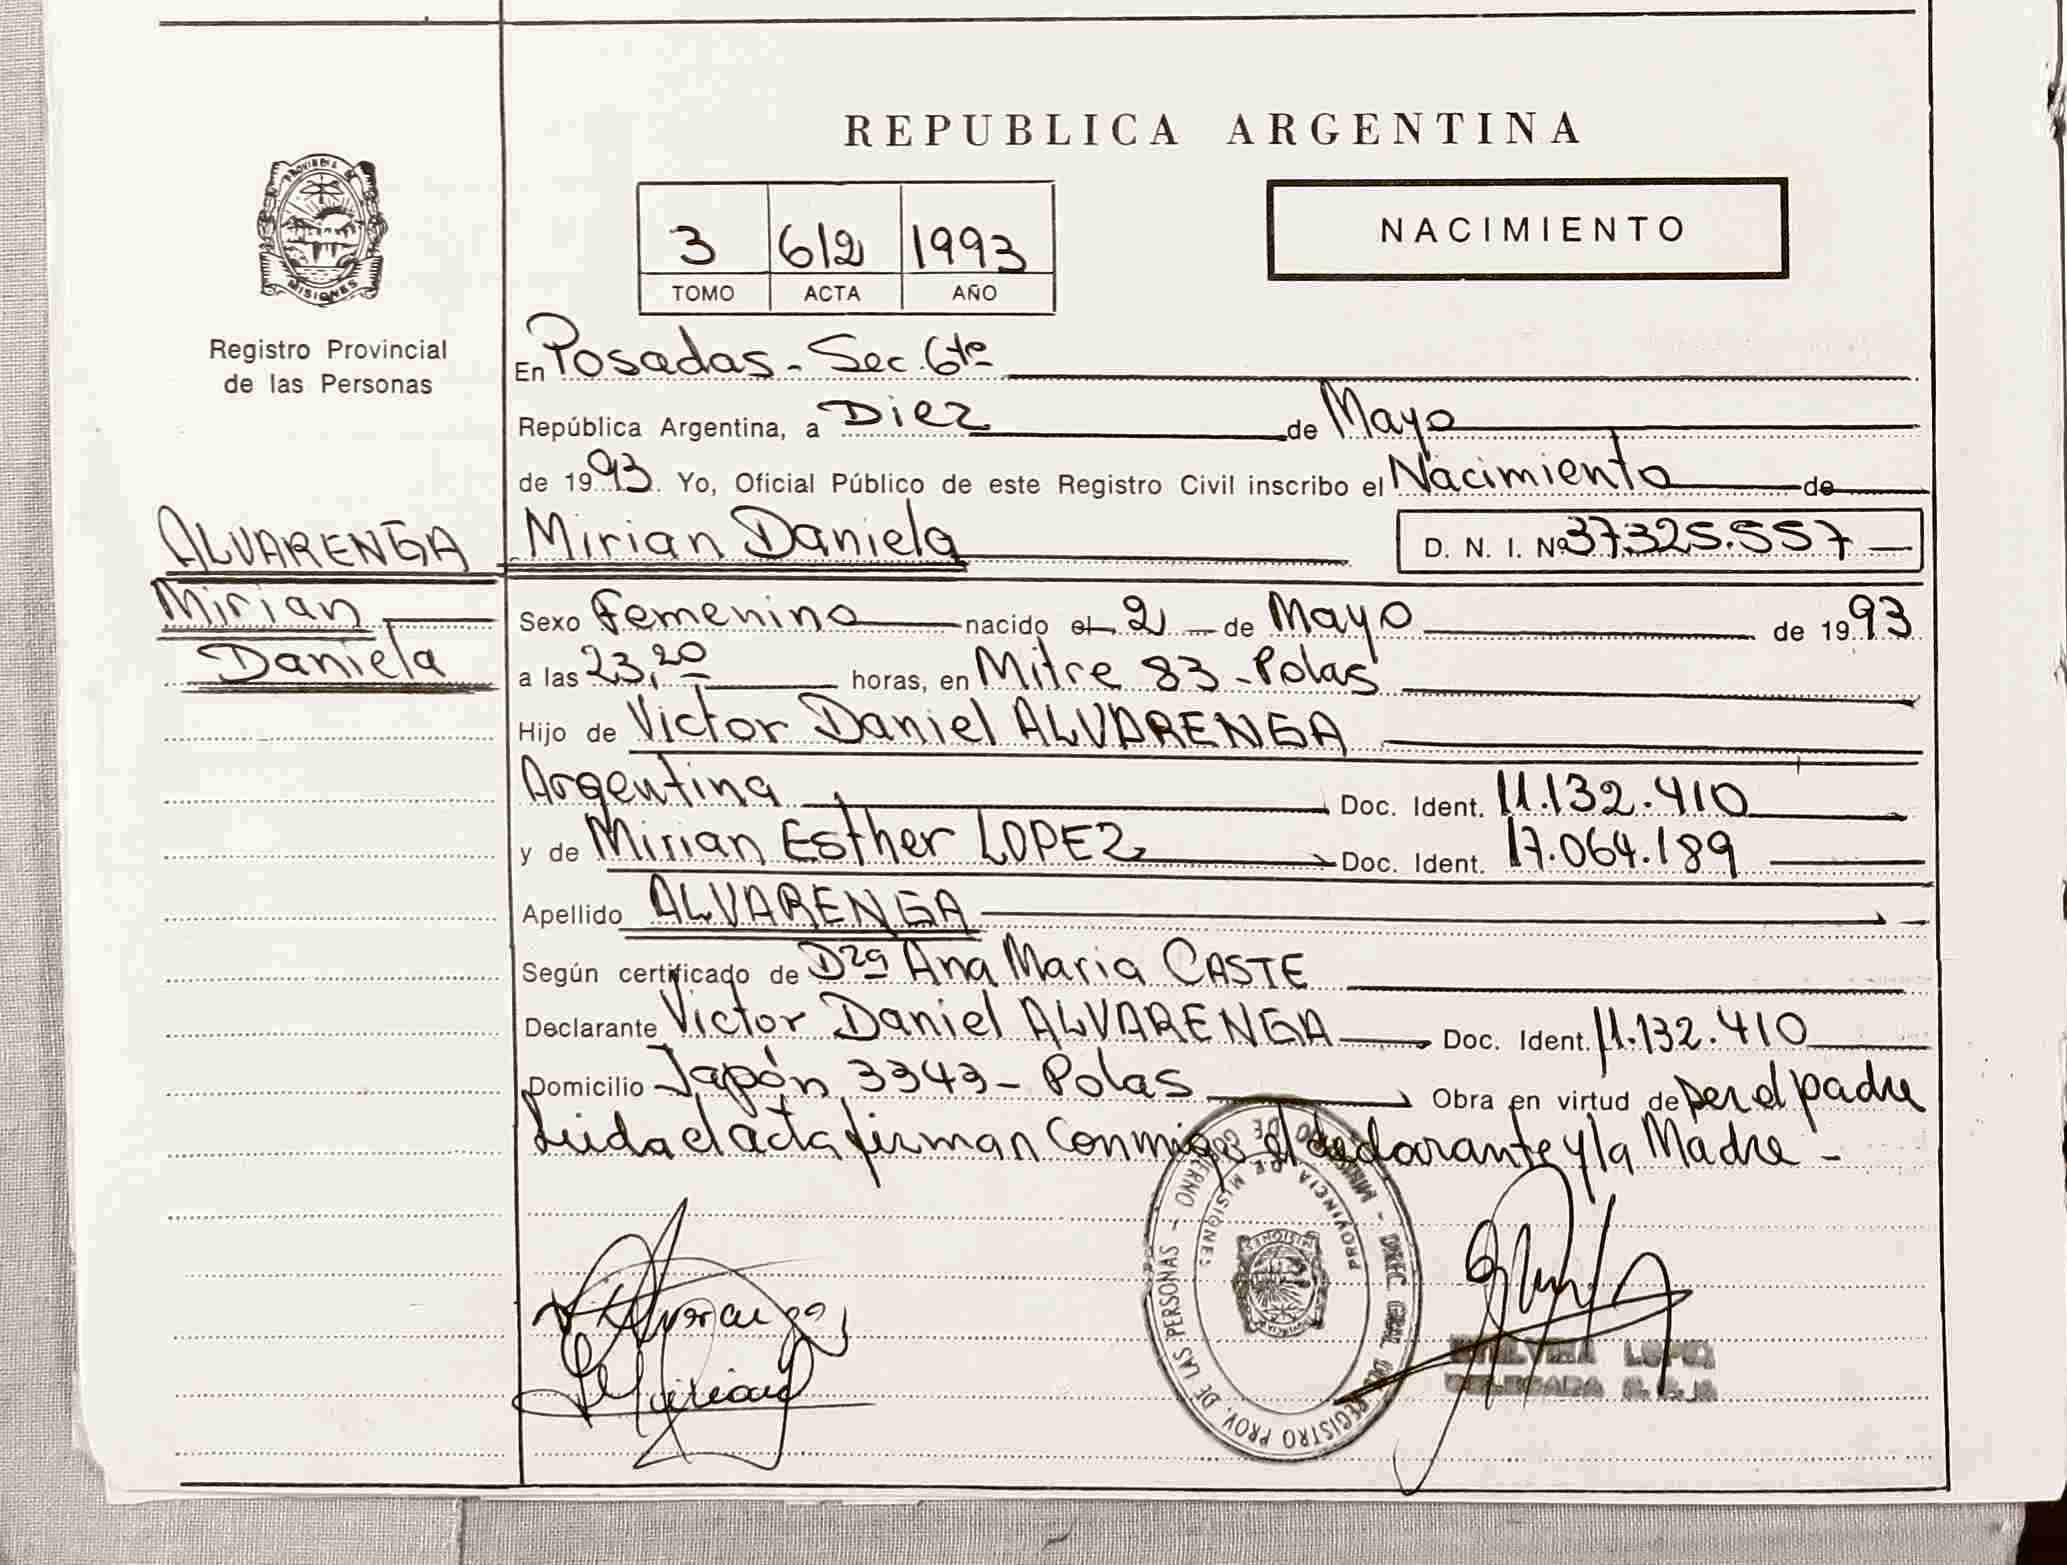 REPUBLICA ARGENTINA
NACIMIENTO
3 612 1993
TOMO ACTA AÑO
PROVINCIA DE
MISIONES
Registro Provincial
de las Personas
En Posadas - Sec. 6ta
República Argentina, a Diez de Mayo
de 1993. Yo, Oficial Público de este Registro Civil inscribo el Nacimiento de
ALVARENGA
Mirian
Daniela
Mirian Daniela D. N. I. Nº 37.325.557
Sexo Femenino nacido el 2 de Mayo de 1993
a las 23,20 horas, en Mitre 83 - Pdas
Hijo de Victor Daniel ALVARENGA
Argentina Doc. Ident. 11.132.410
y de Mirian Esther LOPEZ Doc. Ident. 17.064.189
Apellido ALVARENGA
Según certificado de Dra Ana Maria CASTE
Declarante Victor Daniel ALVARENGA Doc. Ident. 11.132.410
Domicilio Japón 3343 - Pdas Obra en virtud de ser el padre
Leida el acta firman conmigo el declarante y la Madre -
REGISTRO PROV. DE LAS PERSONAS -
PROVINCIA DE MISIONES
LOPEZ
DELEGADA